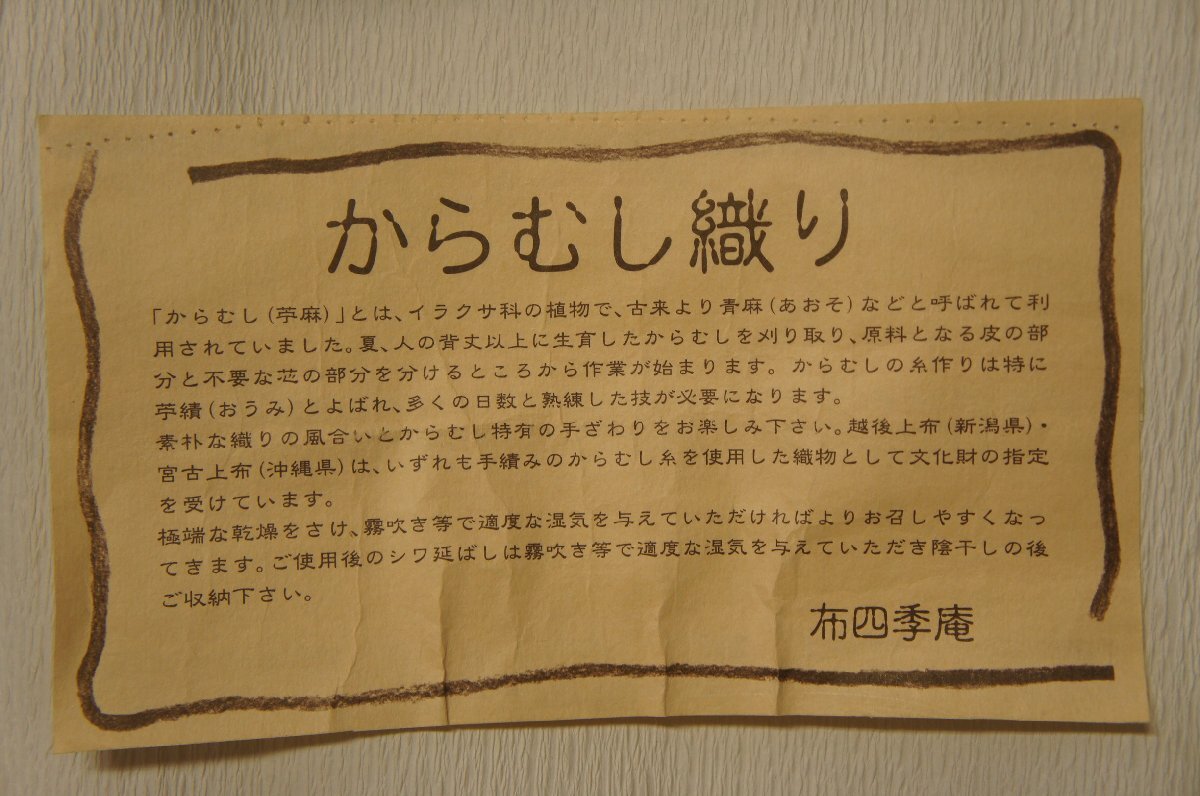 からむし織り
「からむし(苧麻)」とは、イラクサ科の植物で、古来より青麻(あおそ)などと呼ばれて利
用されていました。夏、人の背丈以上に生育したからむしを刈り取り、原料となる皮の部
分と不要な芯の部分を分けるところから作業が始まります。からむしの糸作りは特に
苧績(おうみ)とよばれ、多くの日数と熟練した技が必要になります。
素朴な織りの風合いとからむし特有の手ざわりをお楽しみ下さい。越後上布(新潟県)・
宮古上布(沖縄県)は、いずれも手績みのからむし糸を使用した織物として文化財の指定
を受けています。
極端な乾燥をさけ、霧吹き等で適度な湿気を与えていただければよりお召しやすくなっ
てきます。ご使用後のシワ延ばしは霧吹き等で適度な湿気を与えていただき陰干しの後
ご収納下さい。
布四季庵